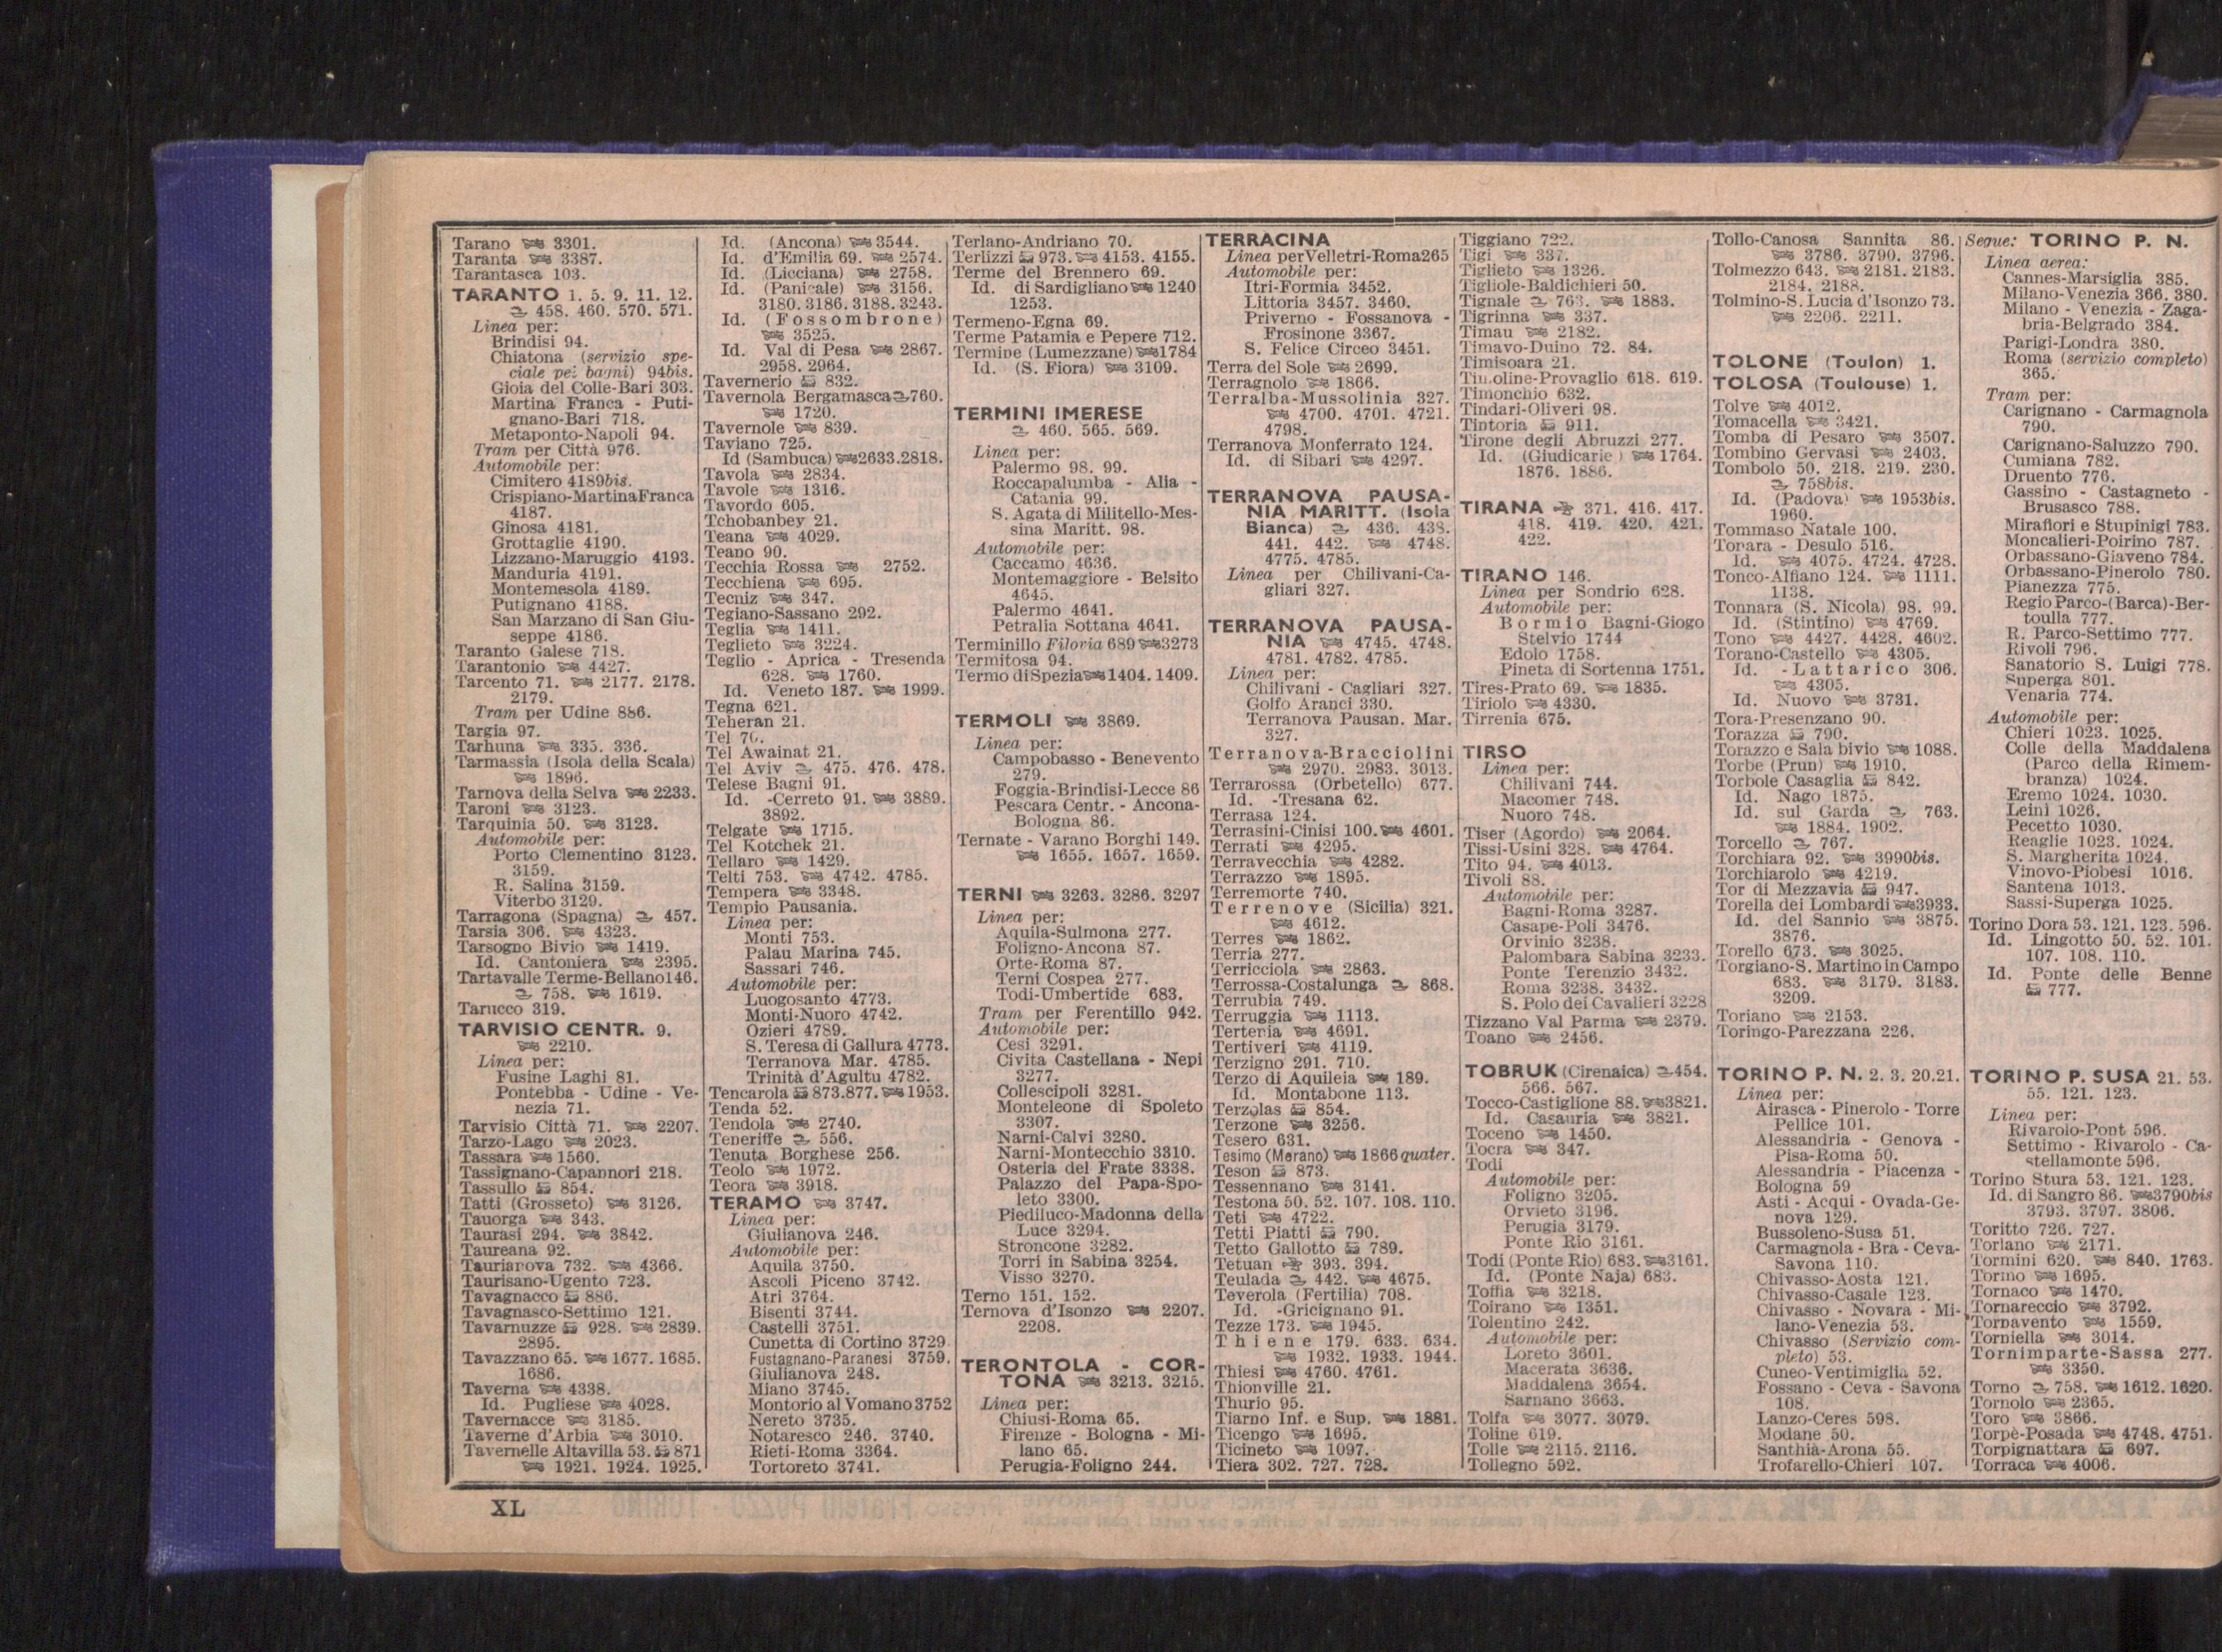 Tarano 3301.
Taranta 3387.
Tarantasca 103.
TARANTO 1. 5. 9. 11. 12.
458. 460. 570. 571.
Linea per:
Brindisi 94.
Chiatona (servizio spe-
ciale per bagni) 94bis.
Gioia del Colle-Bari 303.
Martina Franca - Puti-
gnano-Bari 718.
Metaponto-Napoli 94.
Tram per Città 976.
Automobile per:
Cimitero 4189bis.
Crispiano-Martina Franca
4187.
Ginosa 4181.
Grottaglie 4190.
Lizzano-Maruggio 4193.
Manduria 4191.
Montemesola 4189.
Putignano 4188.
San Marzano di San Giu-
seppe 4186.
Taranto Galese 718.
Tarantonio 4427.
Tarcento 71. 2177. 2178.
2179.
Tram per Udine 886.
Targia 97.
Tarhuna 335. 336.
Tarmassia (Isola della Scala)
1896.
Tarnova della Selva 2233.
Taroni 3123.
Tarquinia 50. 3123.
Automobile per:
Porto Clementino 3123.
3159.
R. Salina 3159.
Viterbo 3129.
Tarragona (Spagna) 457.
Tarsia 306. 4323.
Tarsogno Bivio 1419.
Id. Cantoniera 2395.
Tartavalle Terme-Bellano 146.
758. 1619.
Tarucco 319.
TARVISIO CENTR. 9.
2210.
Linea per:
Fusine Laghi 81.
Pontebba - Udine - Ve-
nezia 71.
Tarvisio Città 71. 2207.
Tarzo-Lago 2023.
Tassara 1560.
Tassignano-Capannori 218.
Tassullo 854.
Tatti (Grosseto) 3126.
Tauorga 343.
Taurasi 294. 3842.
Taureana 92.
Taurianova 732. 4366.
Taurisano-Ugento 723.
Tavagnacco 886.
Tavagnasco-Settimo 121.
Tavarnuzze 928. 2839.
2895.
Tavazzano 65. 1677. 1685.
1686.
Taverna 4338.
Id. Pugliese 4028.
Tavernacce 3185.
Taverne d'Arbia 3010.
Tavernelle Altavilla 53. 871
1921. 1924. 1925.
Id. (Ancona) 3544.
Id. d'Emilia 69. 2574.
Id. (Licciana) 2758.
Id. (Panicale) 3156.
3180. 3186. 3188. 3243.
Id. (Fossombrone)
3525.
Id. Val di Pesa 2867.
2958. 2964.
Tavernerio 832.
Tavernola Bergamasca 760.
1720.
Tavernole 839.
Taviano 725.
Id (Sambuca) 2633. 2818.
Tavola 2834.
Tavole 1316.
Tavordo 605.
Tchobanbey 21.
Teana 4029.
Teano 90.
Tecchia Rossa 2752.
Tecchiena 695.
Tecniz 347.
Tegiano-Sassano 292.
Teglia 1411.
Teglieto 3224.
Teglio - Aprica - Tresenda
628. 1760.
Id. Veneto 187. 1999.
Tegna 621.
Teheran 21.
Tel 70.
Tel Awainat 21.
Tel Aviv 475. 476. 478.
Telese Bagni 91.
Id. -Cerreto 91. 3889.
3892.
Telgate 1715.
Tel Kotchek 21.
Tellaro 1429.
Telti 753. 4742. 4785.
Tempera 3348.
Tempio Pausania.
Linea per:
Monti 753.
Palau Marina 745.
Sassari 746.
Automobile per:
Luogosanto 4773.
Monti-Nuoro 4742.
Ozieri 4789.
S. Teresa di Gallura 4773.
Terranova Mar. 4785.
Trinità d'Agultu 4782.
Tencarola 873. 877. 1953.
Tenda 52.
Tendola 2740.
Teneriffe 556.
Tenuta Borghese 256.
Teolo 1972.
Teora 3918.
TERAMO 3747.
Linea per:
Giulianova 246.
Automobile per:
Aquila 3750.
Ascoli Piceno 3742.
Atri 3764.
Bisenti 3744.
Castelli 3751.
Cunetta di Cortino 3729
Fustagnano-Paranesi 3759.
Giulianova 248.
Miano 3745.
Montorio al Vomano 3752
Nereto 3735.
Notaresco 246. 3740.
Rieti-Roma 3364.
Tortoreto 3741.
Terlano-Andriano 70.
Terlizzi 973. 4153. 4155.
Terme del Brennero 69.
Id. di Sardigliano 1240
1253.
Termeno-Egna 69.
Terme Patamia e Pepere 712.
Termine (Lumezzane) 1784
Id. (S. Fiora) 3109.
TERMINI IMERESE
460. 565. 569.
Linea per:
Palermo 98. 99.
Roccapalumba - Alia -
Catania 99.
S. Agata di Militello-Mes-
sina Maritt. 98.
Automobile per:
Caccamo 4636.
Montemaggiore - Belsito
4645.
Palermo 4641.
Petralia Sottana 4641.
Terminillo Filovia 689 3273
Termitosa 94.
Termo di Spezia 1404. 1409.
TERMOLI 3869.
Linea per:
Campobasso - Benevento
279.
Foggia-Brindisi-Lecce 86
Pescara Centr. - Ancona-
Bologna 86.
Ternate - Varano Borghi 149.
1655. 1657. 1659.
TERNI 3263. 3286. 3297
Linea per:
Aquila-Sulmona 277.
Foligno-Ancona 87.
Orte-Roma 87.
Terni Cospea 277.
Todi-Umbertide 683.
Tram per Ferentillo 942.
Automobile per:
Cesi 3291.
Civita Castellana - Nepi
3277.
Collescipoli 3281.
Monteleone di Spoleto
3307.
Narni-Calvi 3280.
Narni-Montecchio 3310.
Osteria del Frate 3338.
Palazzo del Papa-Spo-
leto 3300.
Piediluco-Madonna della
Luce 3294.
Stroncone 3282.
Torri in Sabina 3254.
Visso 3270.
Terno 151. 152.
Ternova d'Isonzo 2207.
2208.
TERONTOLA - COR-
TONA 3213. 3215.
Linea per:
Chiusi-Roma 65.
Firenze - Bologna - Mi-
lano 65.
Perugia-Foligno 244.
TERRACINA
Linea per Velletri-Roma 265
Automobile per:
Itri-Formia 3452.
Littoria 3457. 3460.
Priverno - Fossanova -
Frosinone 3367.
S. Felice Circeo 3451.
Terra del Sole 2699.
Terragnolo 1866.
Terralba-Mussolinia 327.
4700. 4701. 4721.
4798.
Terranova Monferrato 124.
Id. di Sibari 4297.
TERRANOVA PAUSA-
NIA MARITT. (Isola
Bianca) 436. 438.
441. 442. 4748.
4775. 4785.
Linea per Chilivani-Ca-
gliari 327.
TERRANOVA PAUSA-
NIA 4745. 4748.
4781. 4782. 4785.
Linea per:
Chilivani - Cagliari 327.
Golfo Aranci 330.
Terranova Pausan. Mar.
327.
Terranova-Bracciolini
2970. 2983. 3013.
Terrarossa (Orbetello) 677.
Id. -Tresana 62.
Terrasa 124.
Terrasini-Cinisi 100. 4601.
Terrati 4295.
Terravecchia 4282.
Terrazzo 1895.
Terremorte 740.
Terrenove (Sicilia) 321.
4612.
Terres 1862.
Terria 277.
Terricciola 2863.
Terrossa-Costalunga 868.
Terrubia 749.
Terruggia 1113.
Tertenia 4691.
Tertiveri 4119.
Terzigno 291. 710.
Terzo di Aquileia 189.
Id. Montabone 113.
Terzolas 854.
Terzone 3256.
Tesero 631.
Tesimo (Merano) 1866 quater.
Teson 873.
Tessennano 3141.
Testona 50. 52. 107. 108. 110.
Teti 4722.
Tetti Piatti 790.
Tetto Gallotto 789.
Tetuan 393. 394.
Teulada 442. 4675.
Teverola (Fertilia) 708.
Id. -Gricignano 91.
Tezze 173. 1945.
Thiene 179. 633. 634.
1932. 1933. 1944.
Thiesi 4760. 4761.
Thionville 21.
Thurio 95.
Tiarno Inf. e Sup. 1881.
Ticengo 1695.
Ticineto 1097.
Tiera 302. 727. 728.
Tiggiano 722.
Tigi 337.
Tiglieto 1326.
Tigliole-Baldichieri 50.
Tignale 763. 1883.
Tigrinna 337.
Timau 2182.
Timavo-Duino 72. 84.
Timisoara 21.
Timoline-Provaglio 618. 619.
Timonchio 632.
Tindari-Oliveri 98.
Tintoria 911.
Tirone degli Abruzzi 277.
Id. (Giudicarie) 1764.
1876. 1886.
TIRANA 371. 416. 417.
418. 419. 420. 421.
422.
TIRANO 146.
Linea per Sondrio 628.
Automobile per:
Bormio Bagni-Giogo
Stelvio 1744
Edolo 1758.
Pineta di Sortenna 1751.
Tires-Prato 69. 1835.
Tiriolo 4330.
Tirrenia 675.
TIRSO
Linea per:
Chilivani 744.
Macomer 748.
Nuoro 748.
Tiser (Agordo) 2064.
Tissi-Usini 328. 4764.
Tito 94. 4013.
Tivoli 88.
Automobile per:
Bagni-Roma 3287.
Casape-Poli 3476.
Orvinio 3238.
Palombara Sabina 3233.
Ponte Terenzio 3432.
Roma 3238. 3432.
S. Polo dei Cavalieri 3228
Tizzano Val Parma 2379.
Toano 2456.
TOBRUK (Cirenaica) 454.
566. 567.
Tocco-Castiglione 88. 3821.
Id. Casauria 3821.
Toceno 1450.
Tocra 347.
Todi
Automobile per:
Foligno 3205.
Orvieto 3196.
Perugia 3179.
Ponte Rio 3161.
Todi (Ponte Rio) 683. 3161.
Id. (Ponte Naja) 683.
Toffia 3218.
Toirano 1351.
Tolentino 242.
Automobile per:
Loreto 3601.
Macerata 3636.
Maddalena 3654.
Sarnano 3663.
Tolfa 3077. 3079.
Toline 619.
Tolle 2115. 2116.
Tollegno 592.
Tollo-Canosa Sannita 86.
3786. 3790. 3796.
Tolmezzo 643. 2181. 2183.
2184. 2188.
Tolmino-S. Lucia d'Isonzo 73.
2206. 2211.
TOLONE (Toulon) 1.
TOLOSA (Toulouse) 1.
Tolve 4012.
Tomacella 3421.
Tomba di Pesaro 3507.
Tombino Gervasi 2403.
Tombolo 50. 218. 219. 230.
758bis.
Id. (Padova) 1953bis.
1960.
Tommaso Natale 100.
Tonara - Desulo 516.
Id. 4075. 4724. 4728.
Tonco-Alfiano 124. 1111.
1138.
Tonnara (S. Nicola) 98. 99.
Id. (Stintino) 4769.
Tono 4427. 4428. 4602.
Torano-Castello 4305.
Id. - Lattarico 306.
4305.
Id. Nuovo 3731.
Tora-Presenzano 90.
Torazza 790.
Torazzo e Sala bivio 1088.
Torbe (Prun) 1910.
Torbole Casaglia 842.
Id. Nago 1875.
Id. sul Garda 763.
1884. 1902.
Torcello 767.
Torchiara 92. 3990bis.
Torchiarolo 4219.
Tor di Mezzavia 947.
Torella dei Lombardi 3933.
Id. del Sannio 3875.
3876.
Torello 673. 3025.
Torgiano-S. Martino in Campo
683. 3179. 3183.
3209.
Toriano 2153.
Toringo-Parezzana 226.
TORINO P. N. 2. 3. 20. 21.
Linea per:
Airasca - Pinerolo - Torre
Pellice 101.
Alessandria - Genova -
Pisa-Roma 50.
Alessandria - Piacenza -
Bologna 59
Asti - Acqui - Ovada-Ge-
nova 129.
Bussoleno-Susa 51.
Carmagnola - Bra - Ceva-
Savona 110.
Chivasso-Aosta 121.
Chivasso-Casale 123.
Chivasso - Novara - Mi-
lano-Venezia 53.
Chivasso (Servizio com-
pleto) 53.
Cuneo-Ventimiglia 52.
Fossano - Ceva - Savona
108.
Lanzo-Ceres 598.
Modane 50.
Santhià-Arona 55.
Trofarello-Chieri 107.
Segue: TORINO P. N.
Linea aerea:
Cannes-Marsiglia 385.
Milano-Venezia 366. 380.
Milano - Venezia - Zaga-
bria-Belgrado 384.
Parigi-Londra 380.
Roma (servizio completo)
365.
Tram per:
Carignano - Carmagnola
790.
Carignano-Saluzzo 790.
Cumiana 782.
Druento 776.
Gassino - Castagneto -
Brusasco 788.
Mirafiori e Stupinigi 783.
Moncalieri-Poirino 787.
Orbassano-Giaveno 784.
Orbassano-Pinerolo 780.
Pianezza 775.
Regio Parco-(Barca)-Ber-
toulla 777.
R. Parco-Settimo 777.
Rivoli 796.
Sanatorio S. Luigi 778.
Superga 801.
Venaria 774.
Automobile per:
Chieri 1023. 1025.
Colle della Maddalena
(Parco della Rimem-
branza) 1024.
Eremo 1024. 1030.
Leinì 1026.
Pecetto 1030.
Reaglie 1023. 1024.
S. Margherita 1024.
Vinovo-Piobesi 1016.
Santena 1013.
Sassi-Superga 1025.
Torino Dora 53. 121. 123. 596.
Id. Lingotto 50. 52. 101.
107. 108. 110.
Id. Ponte delle Benne
777.
TORINO P. SUSA 21. 53.
55. 121. 123.
Linea per:
Rivarolo-Pont 596.
Settimo - Rivarolo - Ca-
stellamonte 596.
Torino Stura 53. 121. 123.
Id. di Sangro 86. 3790bis
3793. 3797. 3806.
Toritto 726. 727.
Torlano 2171.
Tormini 620. 840. 1763.
Tormo 1695.
Tornaco 1470.
Tornareccio 3792.
Tornavento 1559.
Torniella 3014.
Tornimparte-Sassa 277.
3350.
Torno 758. 1612. 1620.
Tornolo 2365.
Toro 3866.
Torpè-Posada 4748. 4751.
Torpignattara 697.
Torraca 4006.
XL